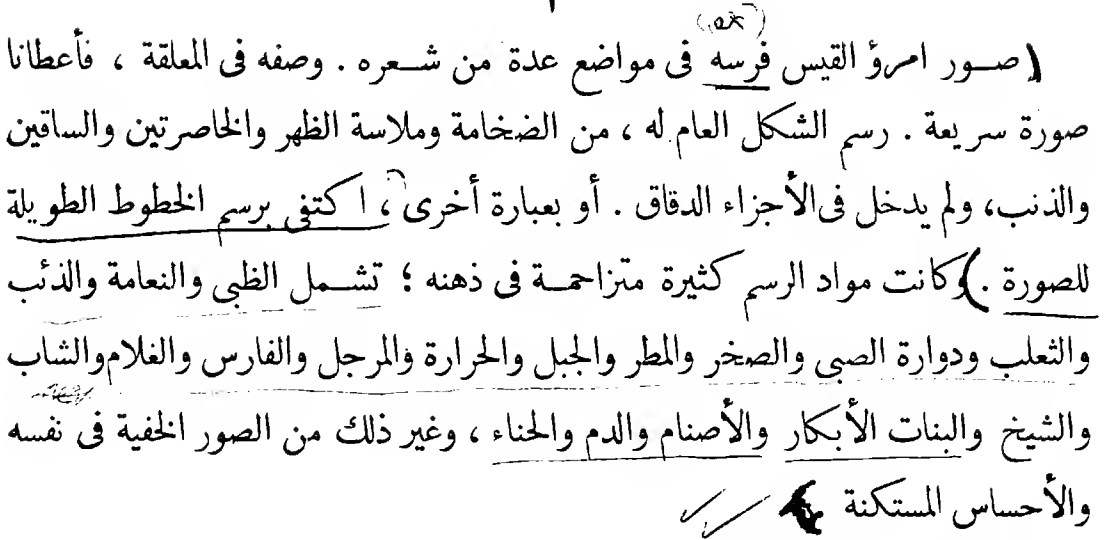 صور امرؤ القيس فرسه فى مواضع عدة من شعره . وصفه فى المعلقة ، فأعطانا
صورة سريعة . رسم الشكل العام له ، من الضخامة وملاسة الظهر والخاصرتين والساقين
والذنب، ولم يدخل فى الأجزاء الدقاق . أو بعبارة أخرى ، اكتفى برسم الخطوط الطويلة
للصورة . وكانت مواد الرسم كثيرة متزاحمة فى ذهنه ؛ تشمل الظبى والنعامة والذئب
والثعلب ودوارة الصبى والصخر والمطر والجبل والحرارة والمرجل والفارس والغلام والشاب
والشيخ والبنات الأبكار والأصنام والدم والحناء ، وغير ذلك من الصور الخفية فى نفسه
والأحساس المستكنة